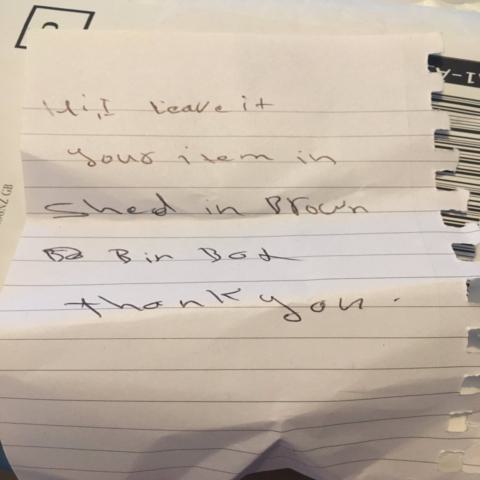 Hi, I leave it
your item in
shed in Brown
Bin
thank you.